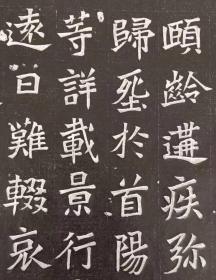 頤齡遘疾弥
歸坙於首陽
等詳載景行
遠日難輟哀